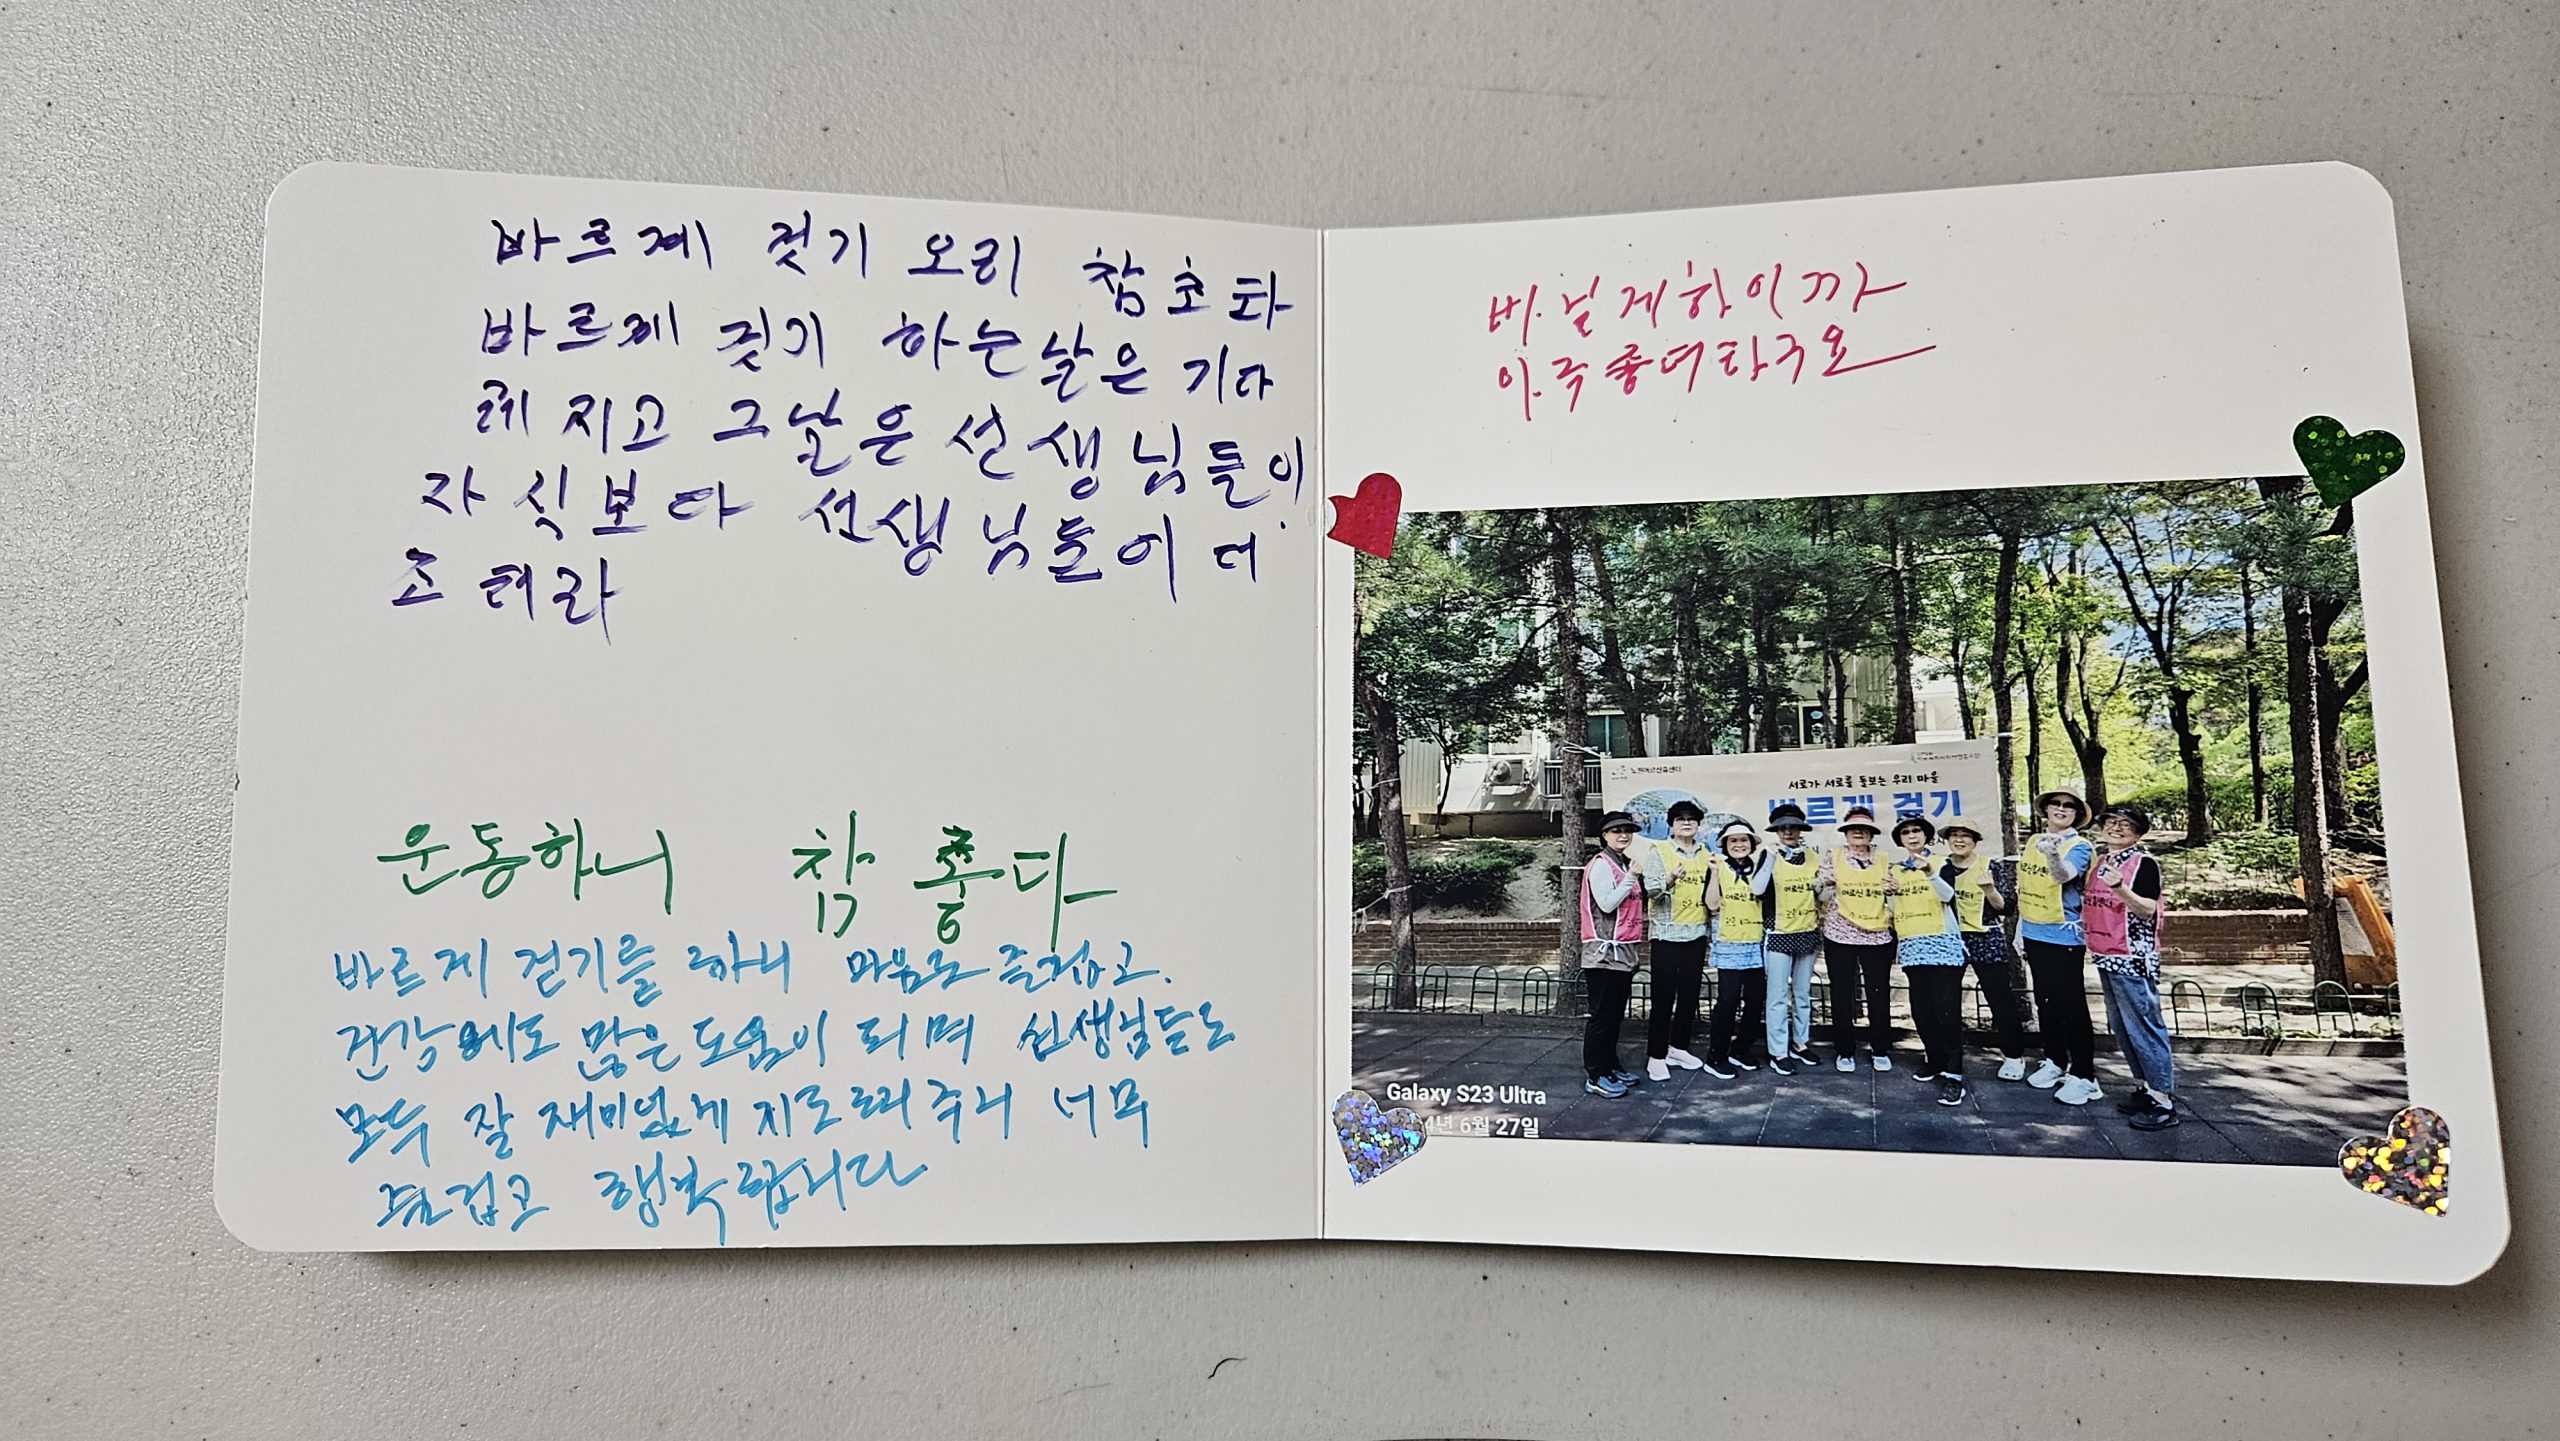 바르제 것기 오리 참 초타
바르제 것기 하는 날은 기다
레 지고 그 날은 선생님들이
자식보다 선생님들이 더
조 터라
운동하니 참 좋다
바르게 걷기를 하니 마음도 즐겁고.
건강에도 많은 도움이 되며 선생님들도
모두 잘 재미있게 지도해 주니 너무
즐겁고 행복합니다
바.닐게하이까
아.주좋더라구요
노원어르신휴센터
서로가 서로를 돌보는 우리 마을
바르게 걷기
Galaxy S23 Ultra
4년 6월 27일